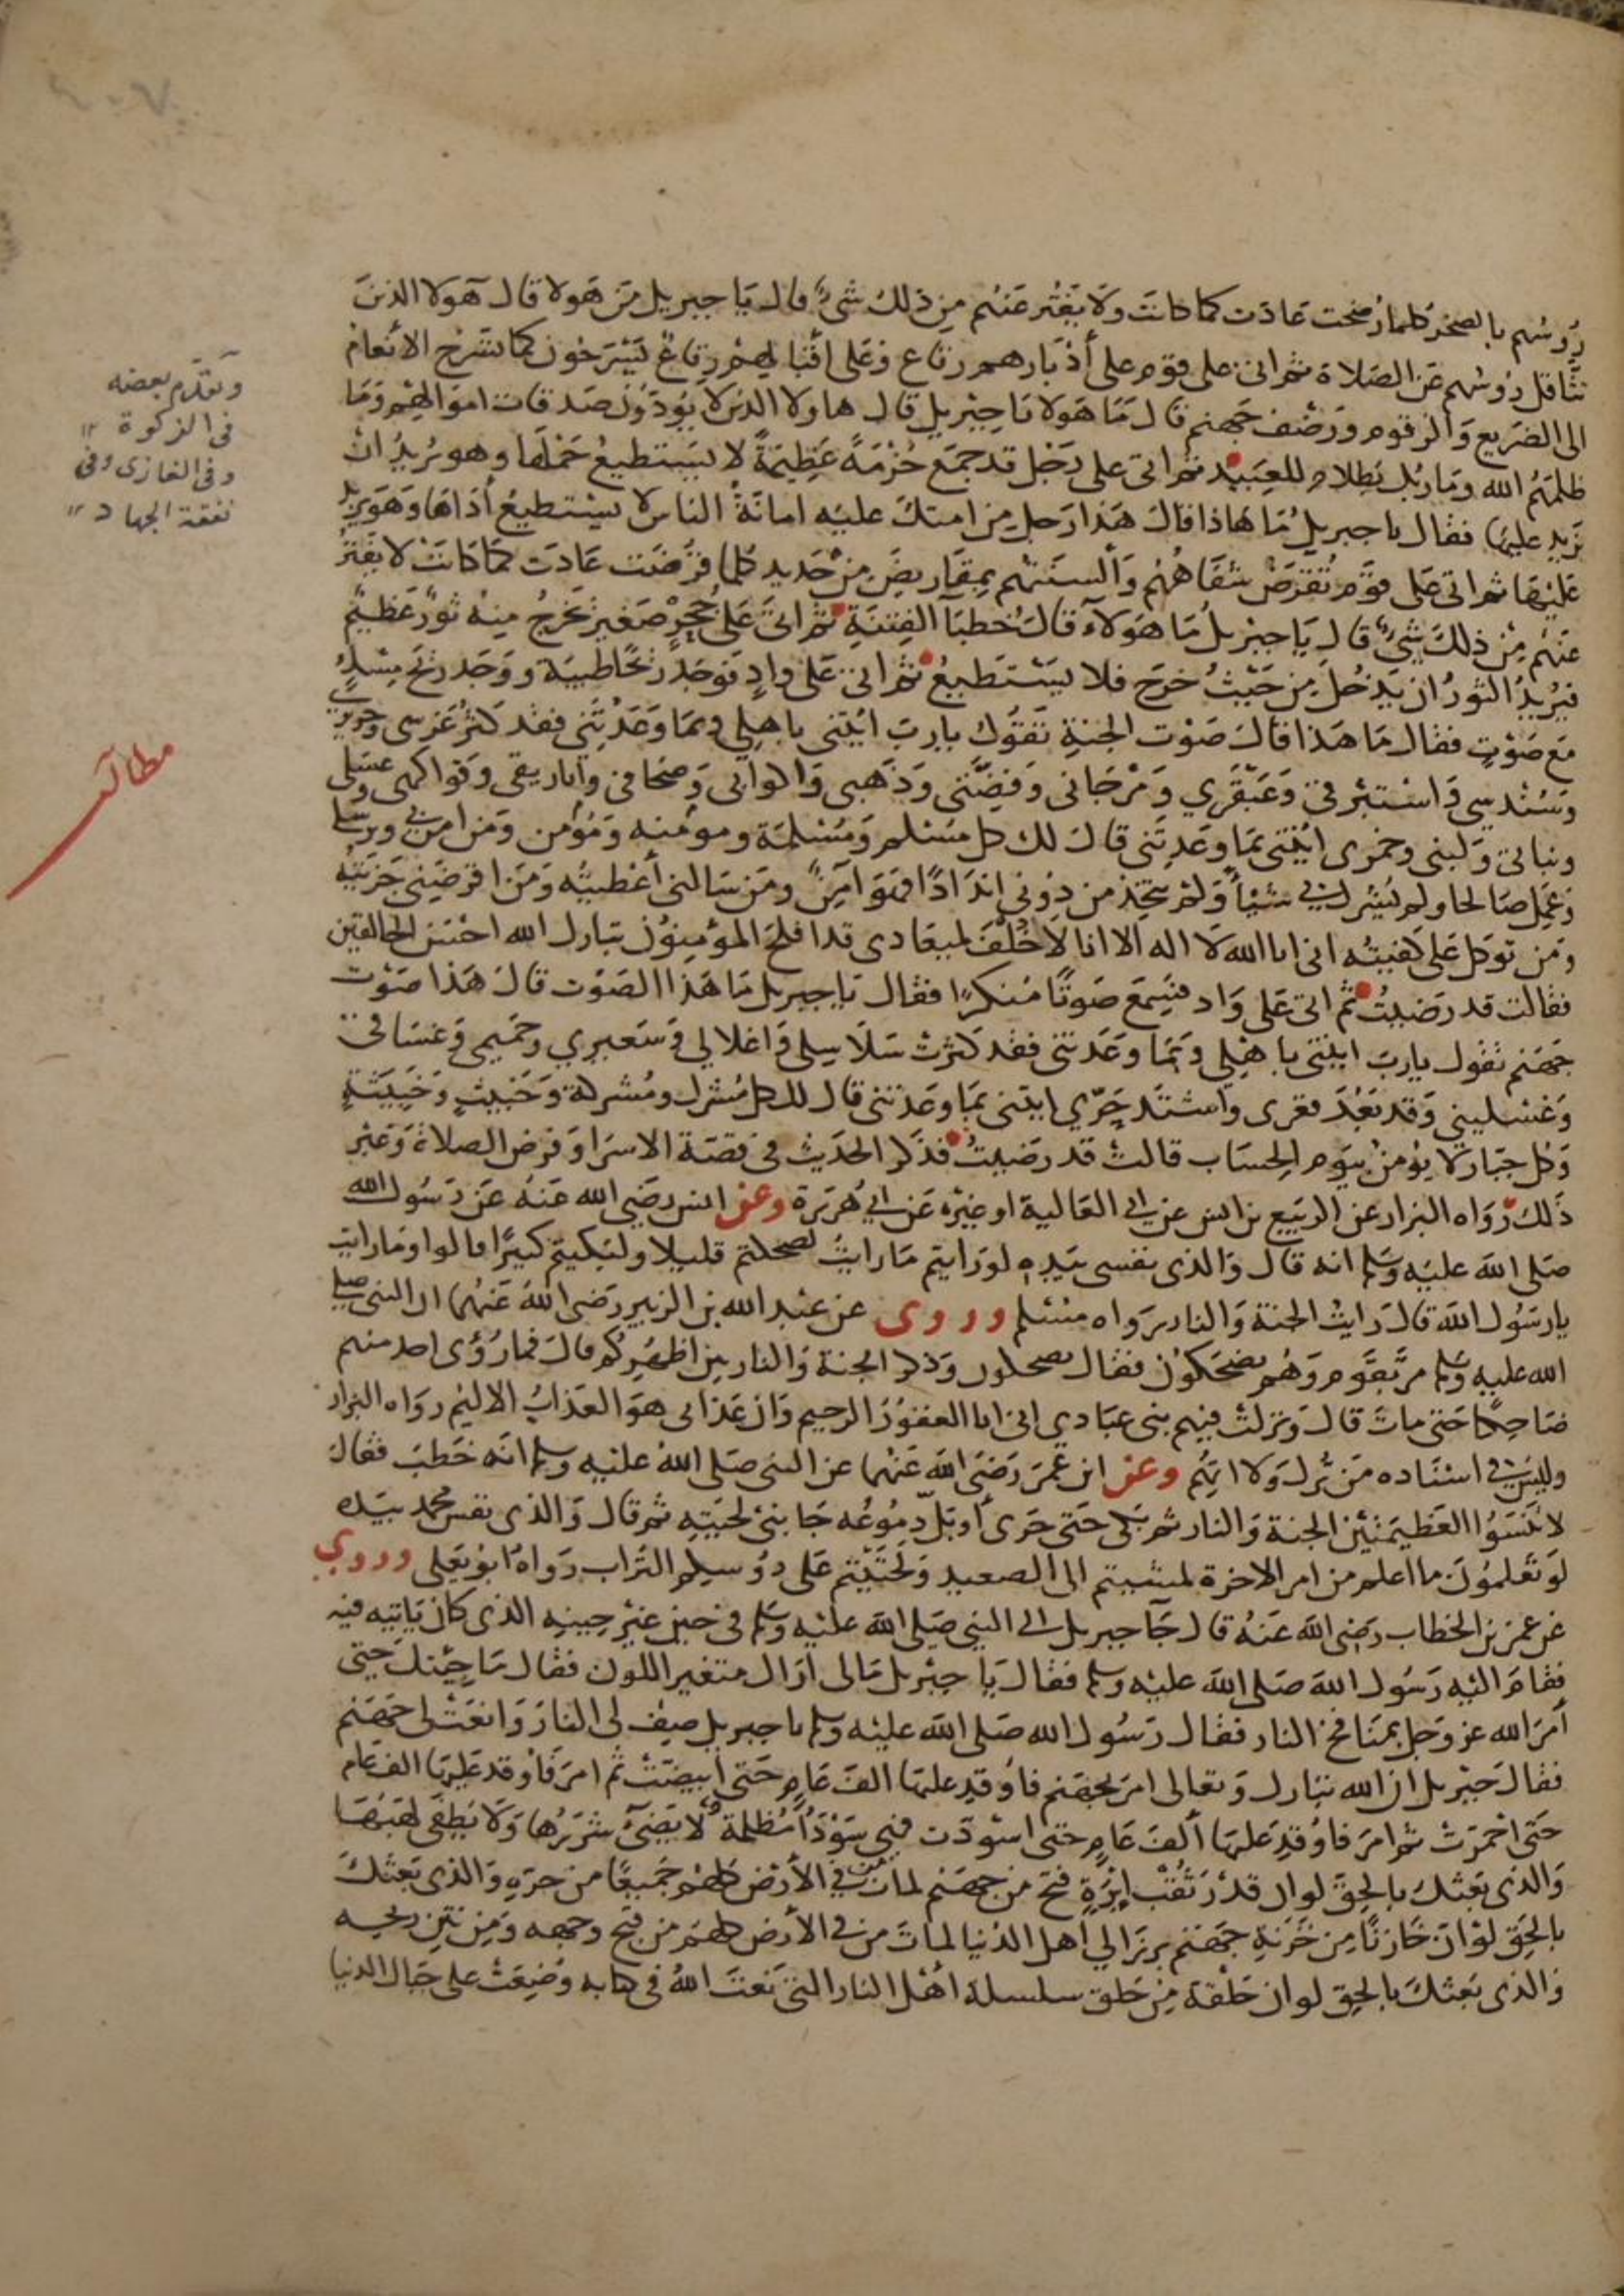 رؤسهم بالصخر كلما رضخت عادت كما كانت ولا يفتر عنهم من ذلك شيء قال يا جبريل من هولا قال هولا الذين
تثاقل رؤسهم عن الصلاة ثم اتى على قوم على أدبارهم رقاع وعلى اقبالهم رقاع يسرحون كما تسرح الأنعام
الى الضريع والزقوم ورضف جهنم قال ما هولا يا جبريل قال هاولا الذين لا يودون صدقات اموالهم وما
ظلمهم الله وما ربك بظلام للعبيد ثم اتى على رجل قد جمع حزمة عظيمة لا يستطيع حملها وهو يريد ان
يزيد عليها فقال يا جبريل ما هاذا قال هذا رجل من امتك عليه امانة الناس لا يستطيع أداها وهو يزيد
عليها ثم اتى على قوم تقرض شفاههم وألسنتهم بمقاريض من حديد كلما قرضت عادت كما كانت لا يفتر
عنهم من ذلك شيء قال يا جبريل ما هولاء قال خطبا الفتنة ثم اتى على حجر صغير يخرج منه ثور عظيم
فيريد الثور ان يدخل من حيث خرج فلا يستطيع ثم اتى على واد فوجد ريحا طيبة ووجد ريح مسك
مع صوت فقال ما هذا قال صوت الجنة تقول يا رب ايتنى باهلي وبما وعدتني فقد كثر غرسى وحريري
وسندسي واستبرقي وعبقري ومرجاني وفضتي وذهبى واكوابى وصحافي واباريقى وفواكهى وعسلى
وثيابي ولبنى وخمرى ايتنى بما وعدتني قال لك كل مسلم ومسلمة ومومنه ومؤمن ومن امن بي وبرسلى
وعمل صالحا ولم يشرك بي شيئا ولم يتخذ من دوني اندادا فهو امن ومن سالني أعطيته ومن اقرضني جزيته
ومن توكل على كفيته انى انا الله لا اله الا انا لا خلف لميعادى قد افلح المؤمنون تبارك الله احسن الخالقين
فقالت قد رضيت ثم اتى على واد فسمع صوتا منكرا فقال يا جبريل ما هذا الصوت قال هذا صوت
جهنم تقول يا رب ايتنى باهلي وبما وعدتنى فقد كثرت سلاسلى واغلالي وسعيري وحميمى وغساقي
وغسليني وقد بعد قعرى واشتد حري ايتنى بما وعدتني قال لك كل مشرك ومشركة وخبيث وخبيثة
وكل جبار لا يؤمن بيوم الحساب قالت قد رضيت فذكر الحديث في قصة الاسرا وفرض الصلاة وغير
ذلك رواه البزار عن الربيع بن انس عن ابي العالية او غيره عن ابي هريرة وعن انس رضي الله عنه عن رسول الله
صلى الله عليه وسلم انه قال والذى نفسى بيده لو رايتم ما رايت لضحكتم قليلا ولبكيتم كثيرا قالوا وما رايت
يا رسول الله قال رايت الجنة والنار رواه مسلم وروى عن عبد الله بن الزبير رضى الله عنهما ان النبى صلى
الله عليه وسلم مر بقوم وهم يضحكون فقال تضحكون وذكر الجنة والنار بين اظهركم قال فما رؤى احد منهم
ضاحكا حتى مات قال ونزلت فيهم نبى عبادي انى انا الغفور الرحيم وان عذابى هو العذاب الاليم رواه البزار
وليس في اسناده من ترك ولا اتهم وعن ابن عمر رضى الله عنهما عن النبى صلى الله عليه وسلم انه خطب فقال
لا تنسوا العظيمتين الجنة والنار ثم بكى حتى جرى أو بل دموعه جانبى لحيته ثم قال والذى نفس محمد بيده
لو تعلمون ما اعلم من امر الاخرة لمشيتم الى الصعيد ولحثيتم على رؤسكم التراب رواه ابو يعلى وروي
عن عمر بن الخطاب رضى الله عنه قال جا جبريل الى النبي صلى الله عليه وسلم في حين غير حينه الذى كان ياتيه فيه
فقام اليه رسول الله صلى الله عليه وسلم فقال يا جبريل مالى اراك متغير اللون فقال ما جئتك حتى
أمر الله عز وجل بمنافخ النار فقال رسول الله صلى الله عليه وسلم يا جبريل صف لى النار وانعت لى جهنم
فقال جبريل ان الله تبارك وتعالى امر بجهنم فاوقد عليها الف عام حتى ابيضت ثم امر فاوقد عليها الف عام
حتى احمرت ثم امر فاوقد عليها ألف عام حتى اسودت فهى سودا مظلمة لا يضئ شررها ولا يطفى لهبها
والذى بعثك بالحق لو ان قدر ثقب إبرة فتح من جهنم لمات من في الأرض كلهم جميعا من حره والذى بعثك
بالحق لو ان خازنا من خزنة جهنم برز الي اهل الدنيا لمات من في الأرض كلهم من قبح وجهه ومن نتن ريحه
والذى بعثك بالحق لو ان حلقة من حلق سلسلة اهل النار التى نعت الله في كتابه وضعت على جبال الدنيا
وتقدم بعضه
في الزكوة
وفى المغازى وفى
نفقة الجهاد